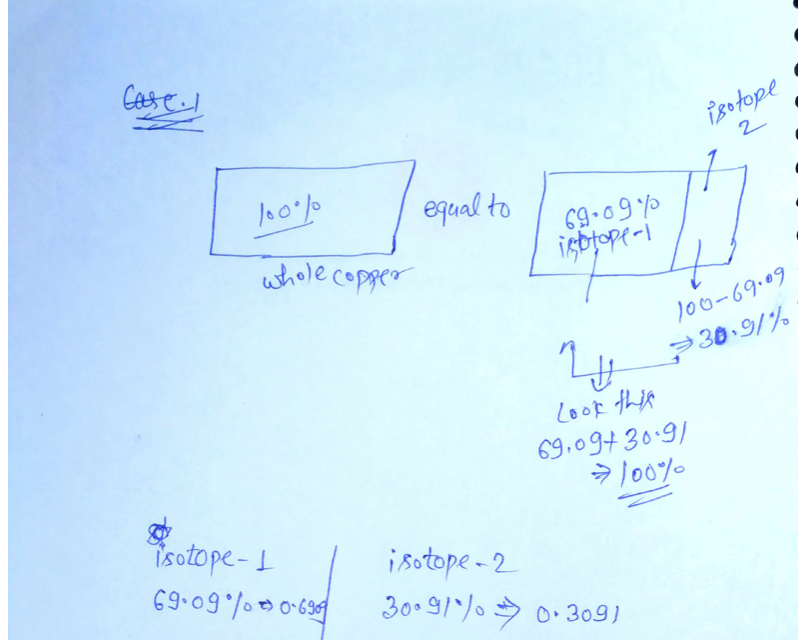 Case.1
isotope
2
100%
equal to
69.09%
isotope-1
whole copper
100-69.09
⇒ 30.91%
Look this
69.09+30.91
⇒ 100%
isotope-1
isotope-2
69.09% ⇒ 0.6909
30.91% ⇒ 0.3091